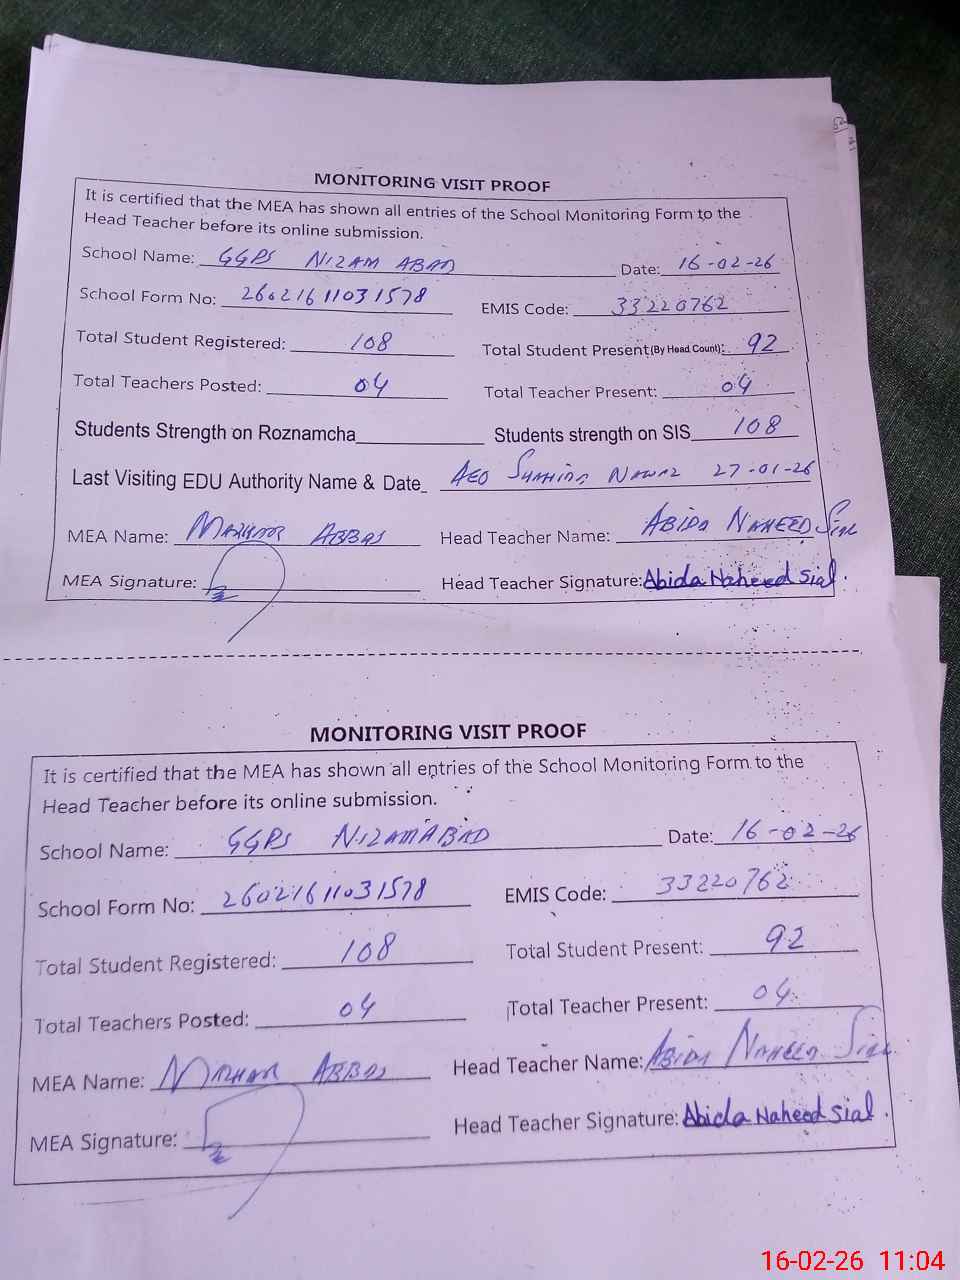 MONITORING VISIT PROOF
It is certified that the MEA has shown all entries of the School Monitoring Form to the
Head Teacher before its online submission.
School Name: GGPS NIZAM ABAD Date: 16-02-26
School Form No: 26021611031578 EMIS Code: 33220762
Total Student Registered: 108 Total Student Present(By Head Count): 92
Total Teachers Posted: 04 Total Teacher Present: 04
Students Strength on Roznamcha Students strength on SIS 108
Last Visiting EDU Authority Name & Date AEO Nawaz 27-01-26
MEA Name: MAZHAR ABBAS Head Teacher Name: ABIDA NAHEED Sial
MEA Signature: Head Teacher Signature: Abida Naheed Sial.
MONITORING VISIT PROOF
It is certified that the MEA has shown all entries of the School Monitoring Form to the
Head Teacher before its online submission.
School Name: GGPS NIZAMABAD Date: 16-02-26
School Form No: 26021611031578 EMIS Code: 33220762
Total Student Registered: 108 Total Student Present: 92
Total Teachers Posted: 04 Total Teacher Present: 04
MEA Name: MAZHAR ABBAS Head Teacher Name: ABIDA NAHEED Sial
MEA Signature: Head Teacher Signature: Abida Naheed Sial.
16-02-26 11:04